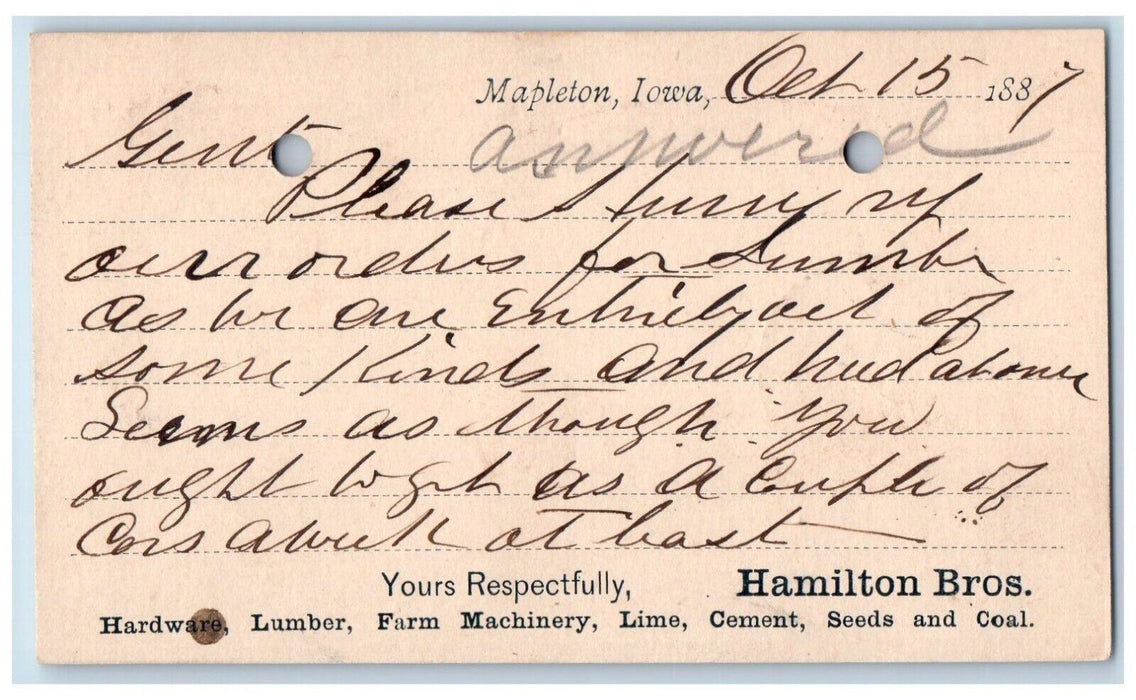 Mapleton, Iowa, Oct 15 1887
Gent
answered
Please Hurry up
our orders for Lumber
as we are Entirely out of
some Kinds and need at once
Seems as though you
ought to get us a Couple of
Cars a week at least
Yours Respectfully, Hamilton Bros.
Hardware, Lumber, Farm Machinery, Lime, Cement, Seeds and Coal.